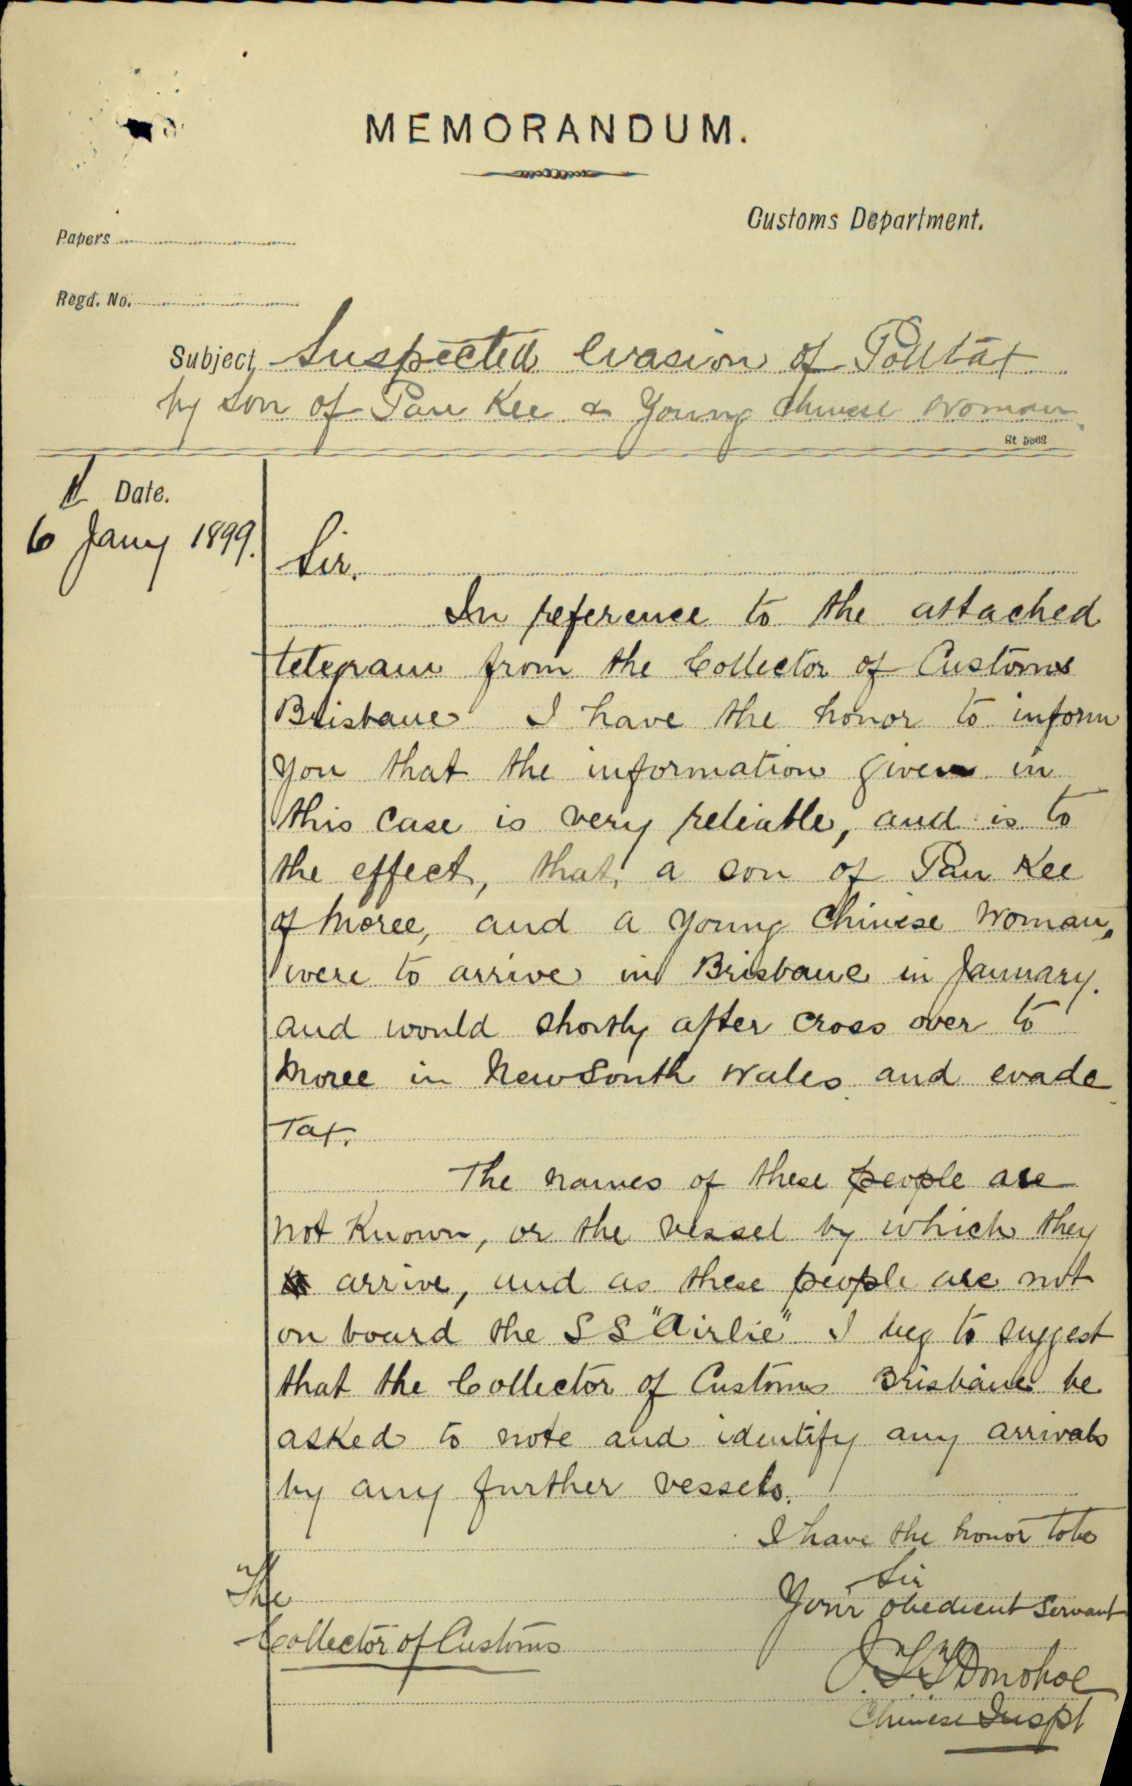 MEMORANDUM.
Customs Department.
Papers
Regd. No.
Subject Suspected evasion of Poll tax
by son of Pan Kee & Young Chinese Woman.
St 5008
Date.
6 Jany 1899.
Sir,
In reference to the attached
telegram from the Collector of Customs
Brisbane I have the honor to inform
you that the information given in
this case is very reliable, and is to
the effect, that, a son of Pan Kee
of Moree, and a young Chinese Woman,
were to arrive in Brisbane in January.
and would shortly after cross over to
Moree in New South Wales and evade
Tax.
The names of these people are
not known, or the vessel by which they
arrive, and as these people are not
on board the SS "Airlie" I beg to suggest
that the Collector of Customs Brisbane be
asked to note and identify any arrivals
by any further vessels.
I have the honor to be
Sir
Your obedient Servant
J. T. T. Donohoe
Chinese Inspt
The
Collector of Customs